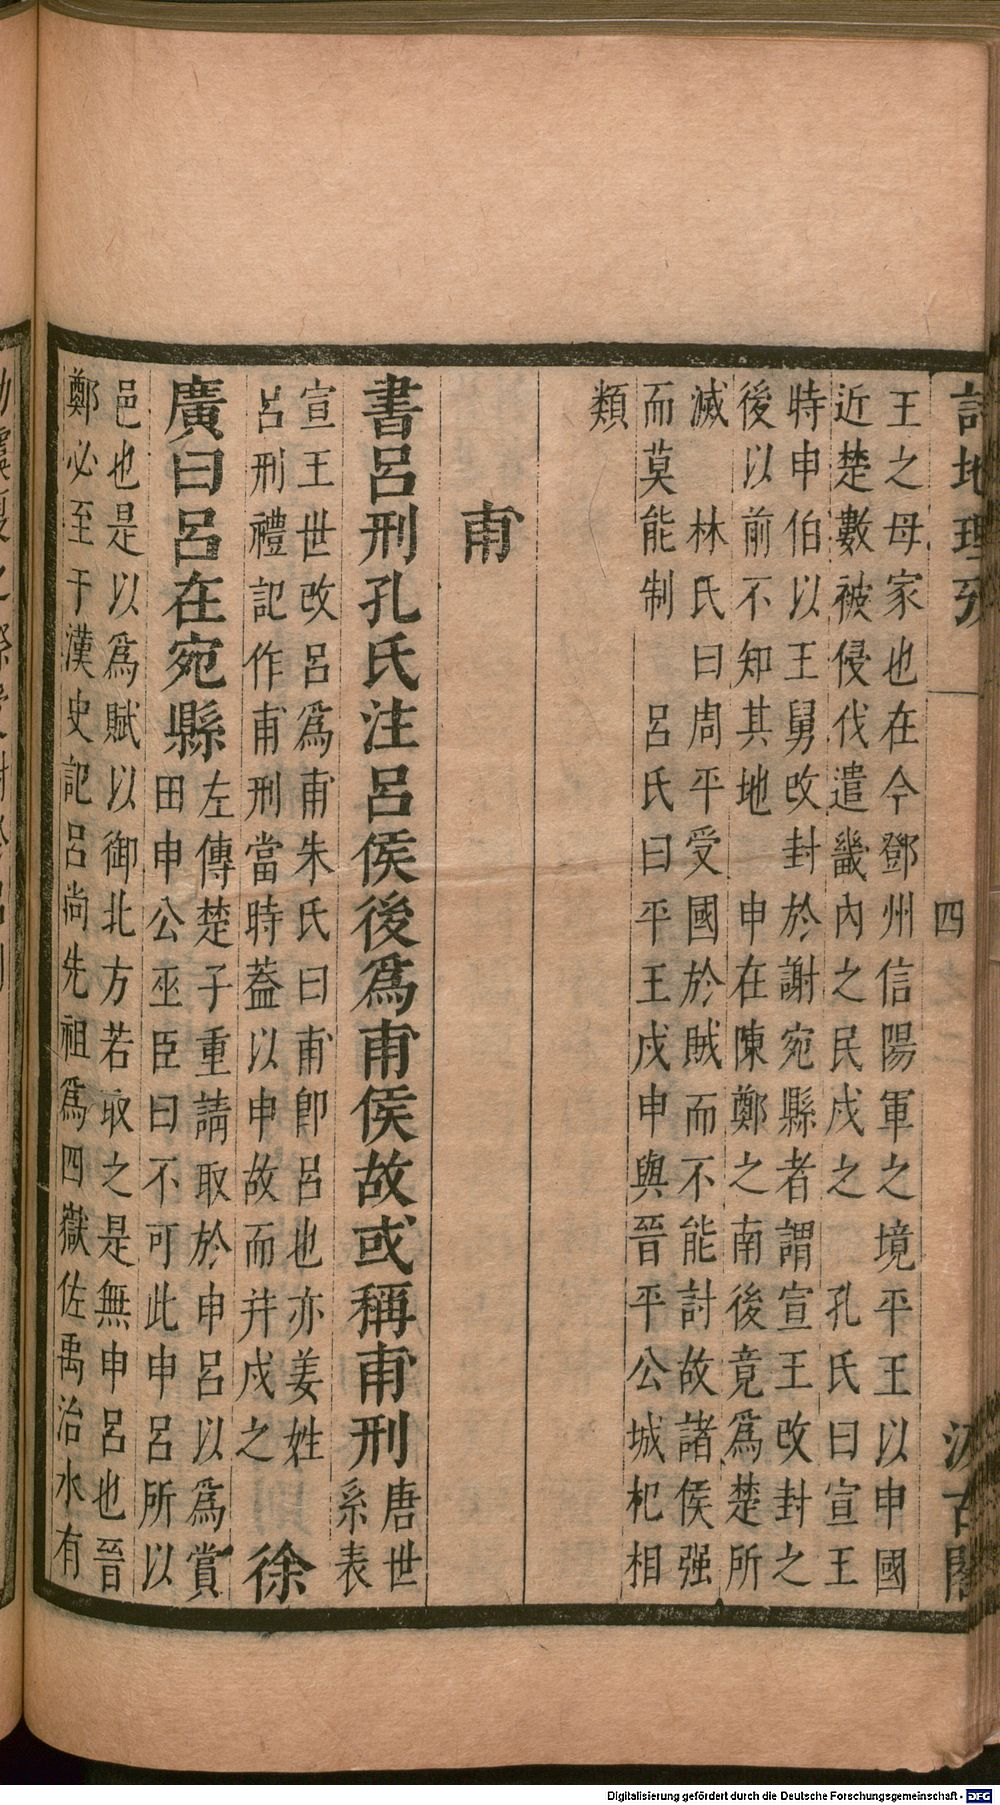 詩地理攷 四 汲古閣
王之母家也在今鄧州信陽軍之境平王以申國
近楚數被侵伐遣畿內之民戍之 孔氏曰宣王
時申伯以王舅改封於謝宛縣者謂宣王改封之
後以前不知其地 申在陳鄭之南後竟爲楚所
滅 林氏曰周平受國於賊而不能討故諸侯强
而莫能制 呂氏曰平王戍申與晉平公城杞相
類
甫
書呂刑孔氏注呂侯後爲甫侯故或稱甫刑唐世系表
宣王世改呂爲甫朱氏曰甫卽呂也亦姜姓
呂刑禮記作甫刑當時葢以申故而幷戍之 徐
廣曰呂在宛縣左傳楚子重請取於申呂以爲賞
田申公巫臣曰不可此申呂所以
邑也是以爲賦以御北方若取之是無申呂也晉
鄭必至于漢史記呂尚先祖爲四嶽佐禹治水有
Digitalisierung gefördert durch die Deutsche Forschungsgemeinschaft - DFG